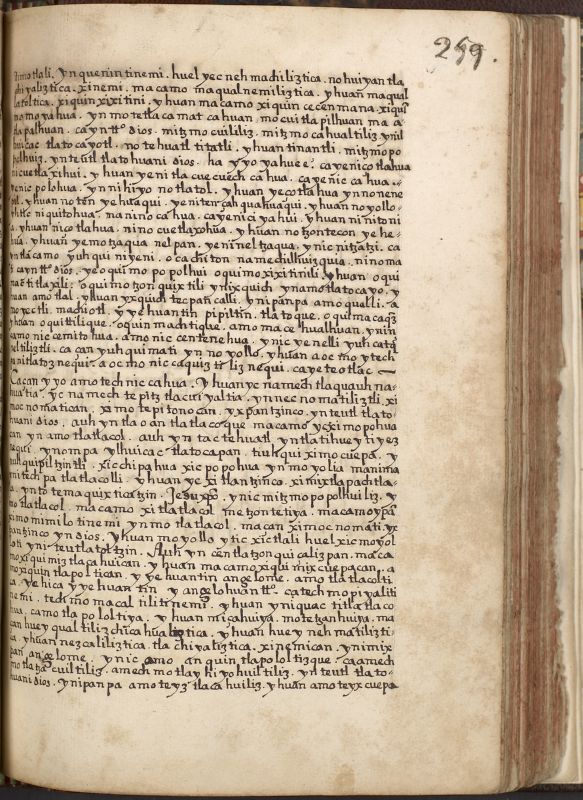 259.
timo tlali. yn quenin tinemi. huel yec neh machiliztica. no huiyan tla
chiyaliztica. xinemi. ma camo maqualnemiliztica. yhuan maqual
tla toltica. xiquin xixitini. yhuan ma camo xiquin cecenmana. xiqui
no mo ya hua. yn mo tetla camat ca huan mo cui tla pilhuan ma a
tla palhuan. ca yn tto dios. mitzmo cuililiz. mitzmo ca hual tiliz yn il
huicac tlato cayotl. no te huatl titatli. yhuan tinantli. mitz mo po
polhuiz. yn teutl tlato huani dios.
ni cuetla xihui. yhuan ye ni tla cue cuech ca hua.
ye nic polohua. yn ni hiyo no tlatol. yhuan ye co tla hua yn no nene
pil. yhuan no ten ye huaqui.
a. yhuan nico tlahua. nino cuetlaxohua. yhuan no tzontecon ye he
hua. yhuan ye mo tzaqua nel pan. ye ni nel tzaqua. ynic nitzatzi. ca
yn tla camo yuh qui ni yeni. o ca chi ton namechilhuizquia. ninoma
ca yn tto dios. ye o qui mo po polhui o qui mo xixitinili yhuan o qui
ma ti tla xili. o qui mo tzon quix tili yn ix quich yn amo tla to ca yo. y
huan amo tlal. yhuan yx quich tec pan calli. yni pan pa amo qualli. a
mo yectli. machiotl. yye huantin pi piltin. tla to que. o qui ma caque
yhuan o quittilique. o quin machtique. amo ma ce hualhuan. yn in
camo nic cemitohua. amo nic centene hua. ynic ye nelli yuh catqui
nel tiliztli. ca çan yuh qui mati yn no yollo. yhuan aoc tno ytech
ni ni tlatoz nequi. aoc mo nic caquiz tiliz nequi. ca ye teotlac
Ca çan yyo amo tech nic ca hua. Yhuan yc namech tlaquauh na
hua tia. yc namech te pitz tlacui yal tia. yn nec no ma tiliztli. xi
moc no matican. xi mo te pi tono can. yxpantzinco. yn teutl tla to
huani dios. auh yn tla o an tla tla co que ma camo yc xi mo pohua
can yn amo tlatlacol. auh yn tac te huatl yn tla tihuey ti yez
nequi. yn ompa ylhuicac tlatocapan. tiuh qui ximo cuepa. y
yuh qui piltzintli. xic chi pahua xic po pohua yn mo yolia manima
mitech pa tlatlacolli. yhuan ye xi tlantzinco. xi mix tla pach tla
a. yn to temaquixticatzin. Jesu xpo. ynic mitz mo po polhuiliz. y
mo tlatlacol. ma camo xi tlatlacol metzontetiya. ma camo ypan
xi mo mimilo tinemi yn mo tlatlacol. ma can ximoc no mati. yx
pantzinco yn dios. yhuan mo yollo y tic xic tlali huel xic mo yol
loti yni teutlatoltzin. Auh yn cen tlatzonqui caliz pan. ma ca
mo xi qui miz tla ca huican. yhuan ma camo xiqui mix cue pa can. a
mo xi quin tla pol tican. yye huantin angelome. amo tlatlacolti
ca. ye hica yye huan tin yn angelohuan tto. ca tech mo pi yaliti
ne mi. tech mo macal tilitinemi. yhuan yniquac titla tla co
hua. camo tla po lol tiya. yhuan mi çahuiya. mo te tzan huiya. ma
can huey qual tiliz chica hualiztica. yhuan huey neh ma tiliz ti
ca. yhuan nez caliliztica. tla chiyaliztica. xinemican. yn im ix
pan angelome. ynic amo an quin tla pololtizque. ca amech
mo tlatza cuil tiliz. amech mo tlay hiyo huil tiliz. yn teutl tla to
huani dios. yni pan pa amo te yz tla ca huiliz. yhuan amo te yx cuepa